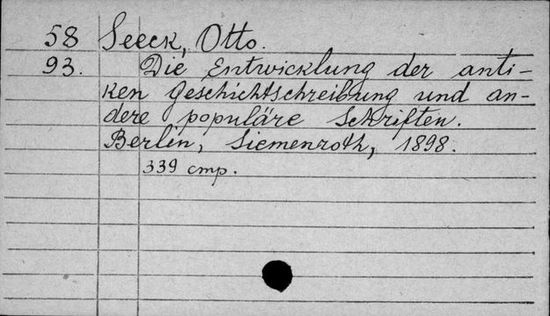 58 Seeck, Otto.
93. Die Entwicklung der anti-
ken Geschichtschreibung und an-
dere populäre Schriften.
Berlin, Siemenroth, 1898.
339 стр.